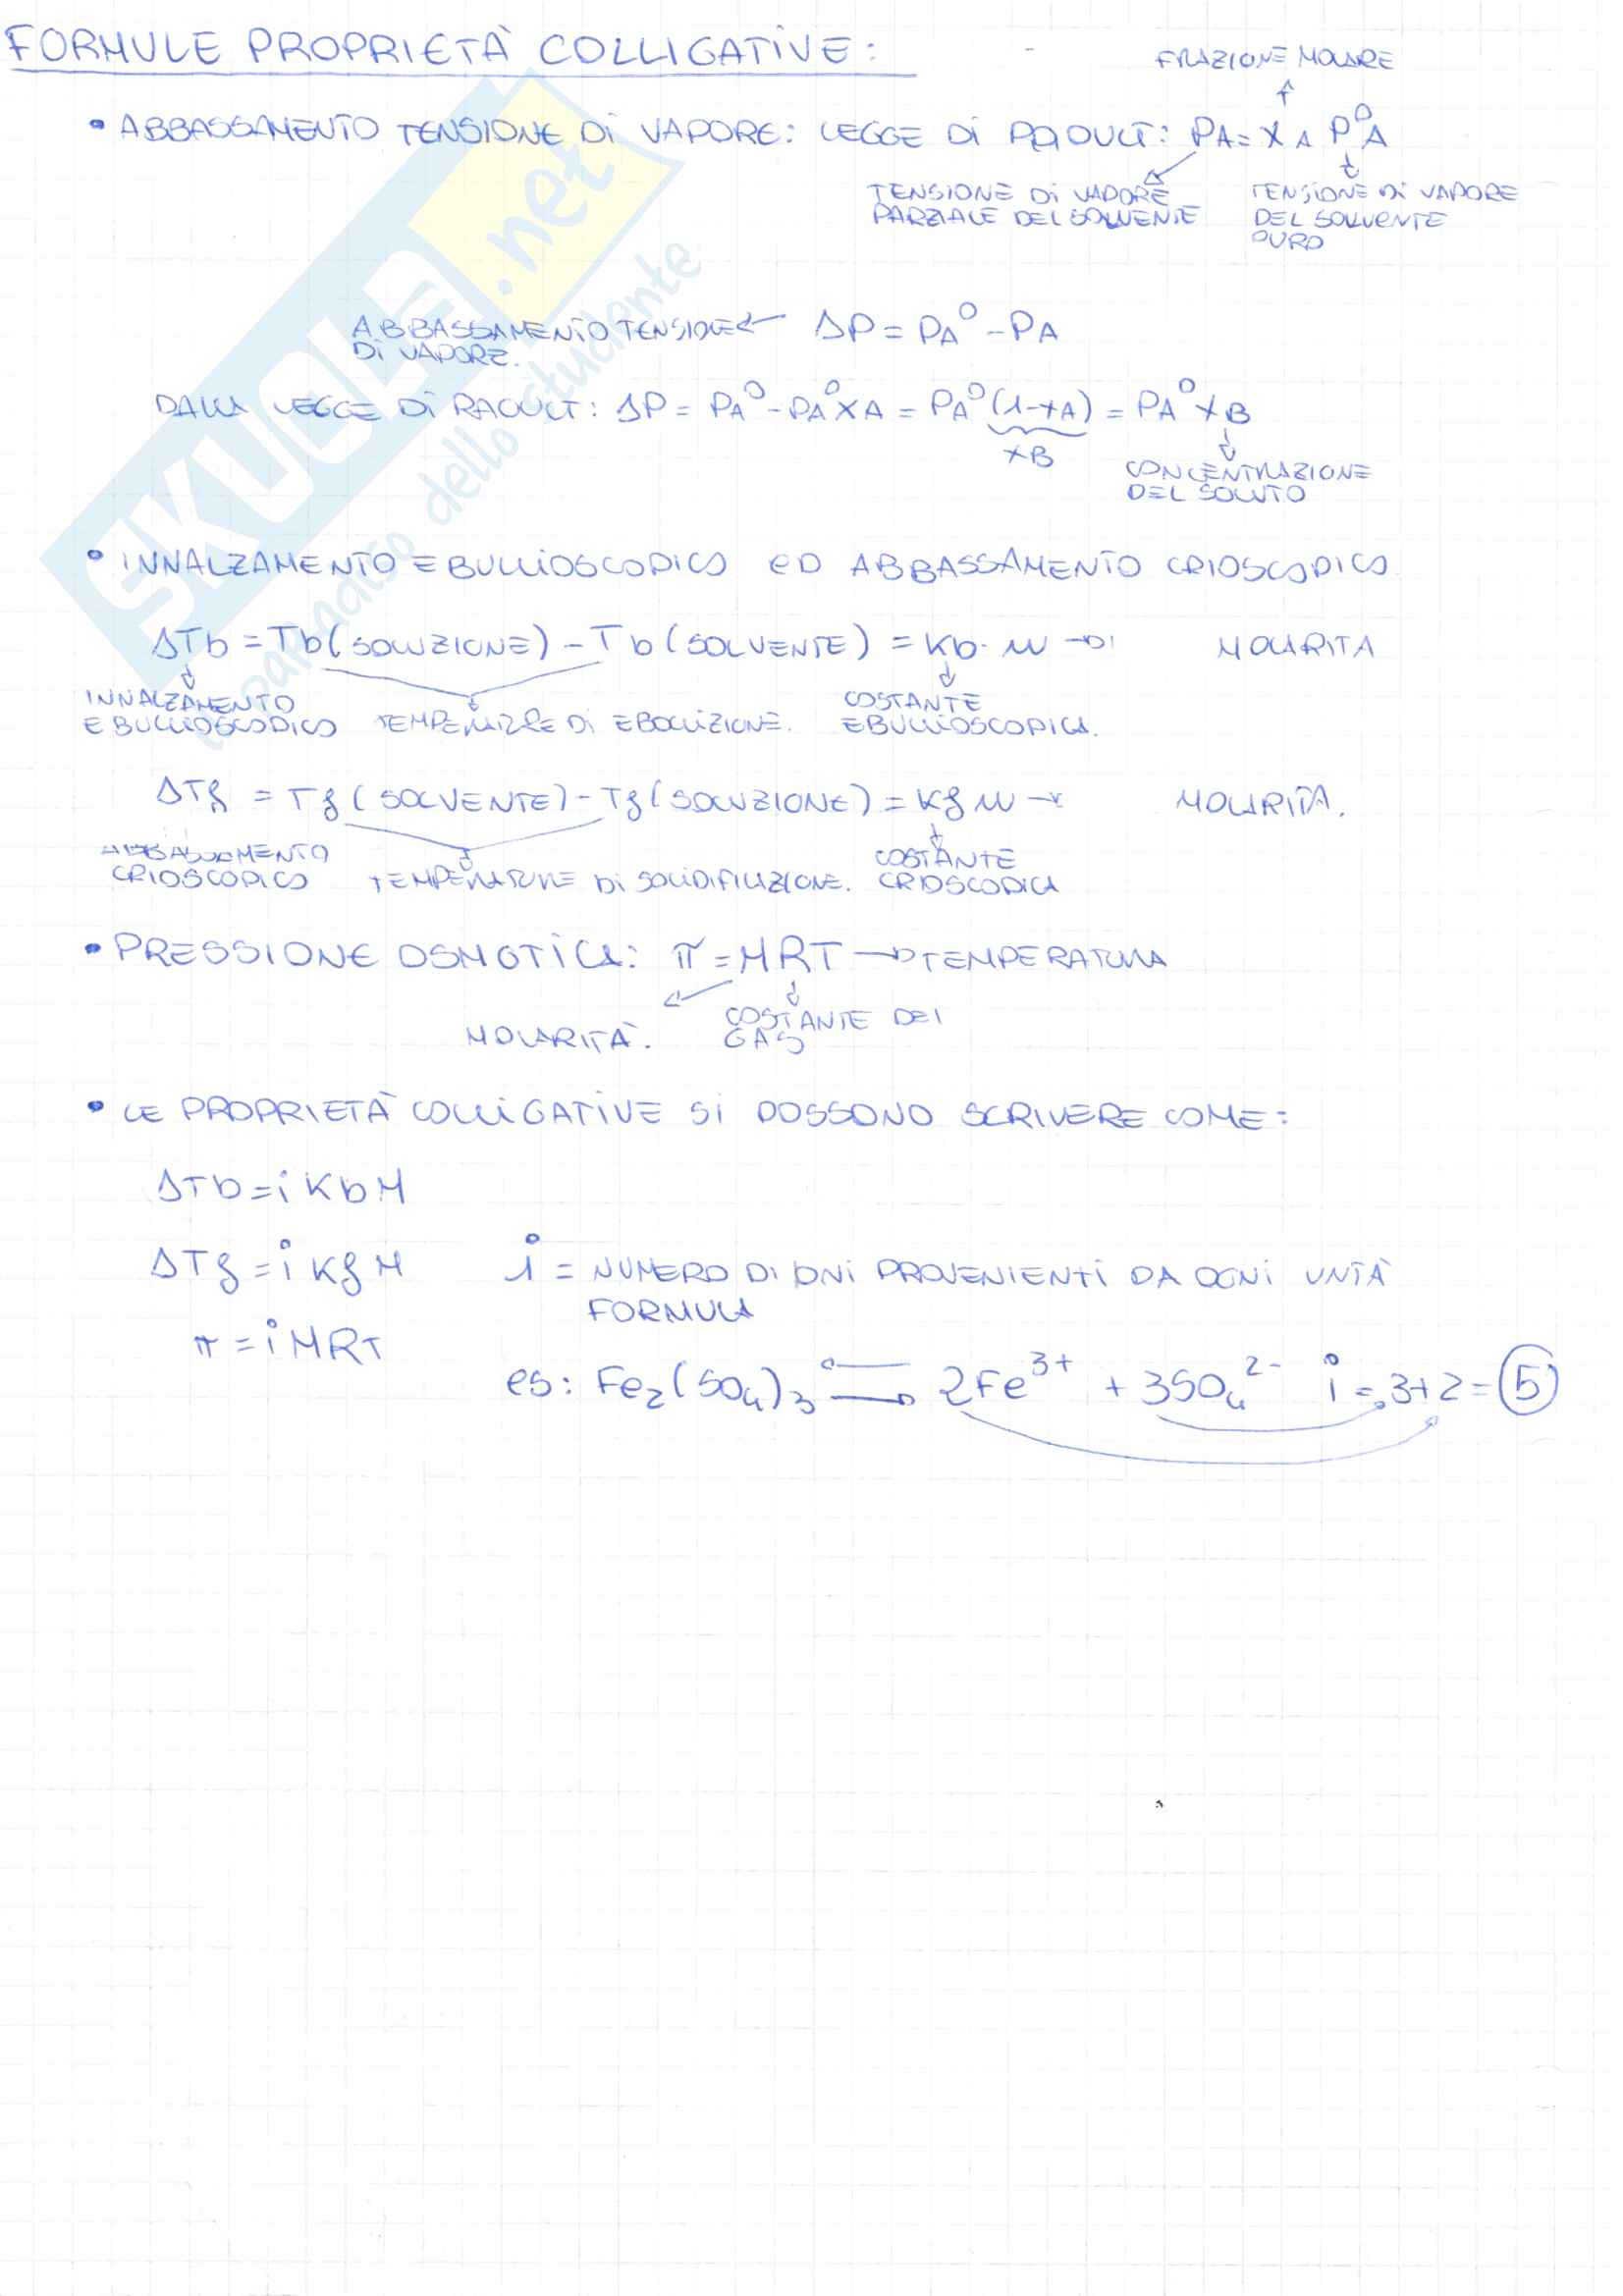 FORMULE PROPRIETÀ COLLIGATIVE:
FRAZIONE MOLARE
• ABBASSAMENTO TENSIONE Di VAPORE: LEGGE Di RAOULT: PA = XA P⁰A
TENSIONE Di VAPORE PARZIALE DEL SOLVENTE
TENSIONE Di VAPORE DEL SOLVENTE PURO
ABBASSAMENTO TENSIONE Di VAPORE. ← ΔP = PA⁰ - PA
DALLA LEGGE Di RAOULT: ΔP = PA⁰ - PA⁰XA = PA⁰(1-XA) = PA⁰XB
XB
CONCENTRAZIONE DEL SOLUTO
• INNALZAMENTO EBULLIOSCOPICO ED ABBASSAMENTO CRIOSCOPICO
ΔTb = Tb (SOLUZIONE) - Tb (SOLVENTE) = Kb · m → MOLARITA
INNALZAMENTO EBULLIOSCOPICO
TEMPERATURE Di EBOLLIZIONE.
COSTANTE EBULLIOSCOPICA.
ΔTf = Tf (SOLVENTE) - Tf (SOLUZIONE) = Kf m → MOLARITÀ.
ABBASSAMENTO CRIOSCOPICO
TEMPERATURE Di SOLIDIFICAZIONE.
COSTANTE CRIOSCOPICA
• PRESSIONE OSMOTICA: π = MRT → TEMPERATURA
MOLARITÀ.
COSTANTE DEI GAS
• LE PROPRIETÀ COLLIGATIVE Si POSSONO SCRIVERE COME:
ΔTb = i Kb M
ΔTf = i Kf M
i = NUMERO Di IONi PROVENIENTi DA OGNi UNTÀ FORMULA
π = i MRT
es: Fe₂(SO₄)₃ ⇌ 2Fe³⁺ + 3SO₄²⁻ i = 3+2 = 5
SKUOLA.net
dello studente